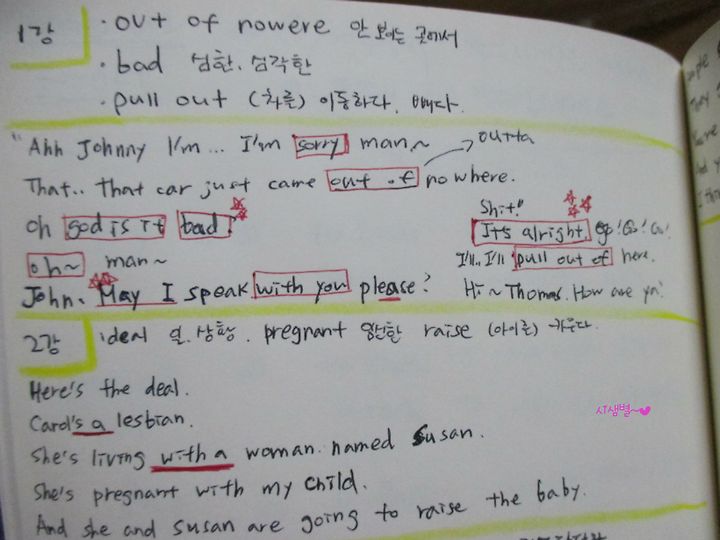 1강
· out of nowere 안 보이는 곳에서
· bad 심한. 심각한
· pull out (차를) 이동하다. 빼다.
"Ahh Johnny I'm... I'm sorry man~
outta
That.. That car just came out of nowhere.
oh god is it bad?
Shit!
It's alright. Go! Go! Go!
oh~ man~
I'll.. I'll pull out of here.
John. May I speak with you please?
Hi~ Thomas. How are ya?
2강
deal 일. 상황. pregnant 임신한 raise (아이를) 키우다.
Here's the deal.
Carol's a lesbian.
She's living with a woman named Susan.
She's pregnant with my child.
And she and Susan are going to raise the baby.
시샘별~♥